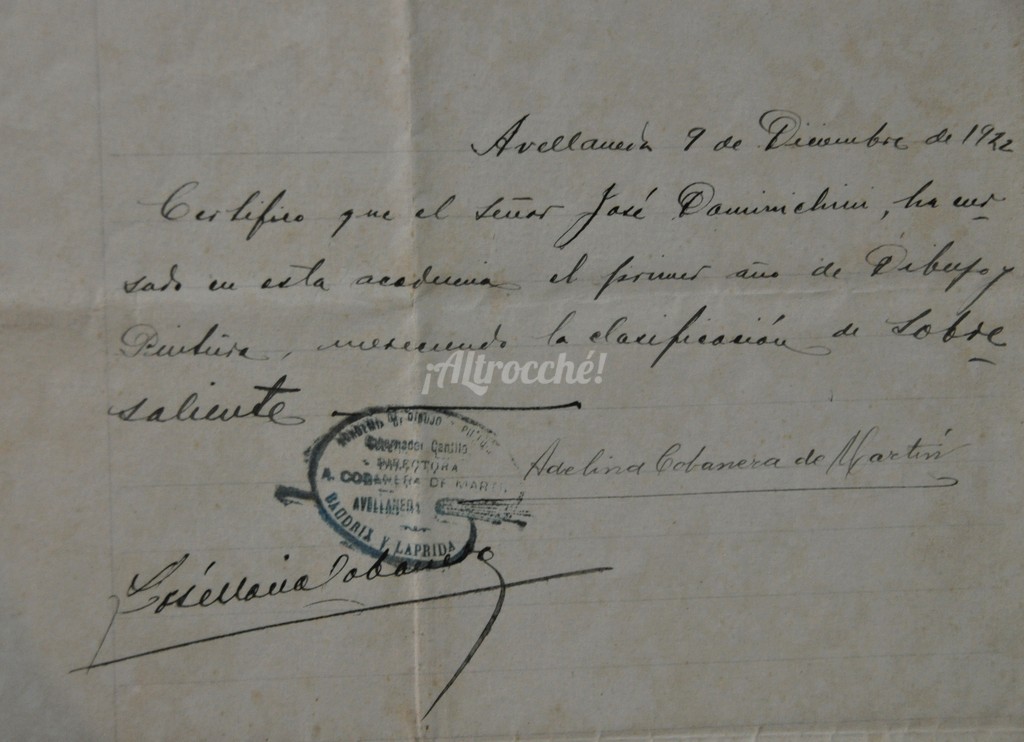 Avellaneda 9 de Diciembre de 1922
Certifico que el señor José Dominichini, ha cur
sado en esta academia el primer año de Dibujo y
Pintura, mereciendo la clasificación de Sobre
saliente
¡Altrocché!
ACADEMIA DE DIBUJO Y PINTURA
Gobernador Cantilo
DIRECTORA
A. COBANERA DE MARTIN
AVELLANEDA
BAUDRIX Y LAPRIDA
Adelina Cobanera de Martín
José María Cobanera